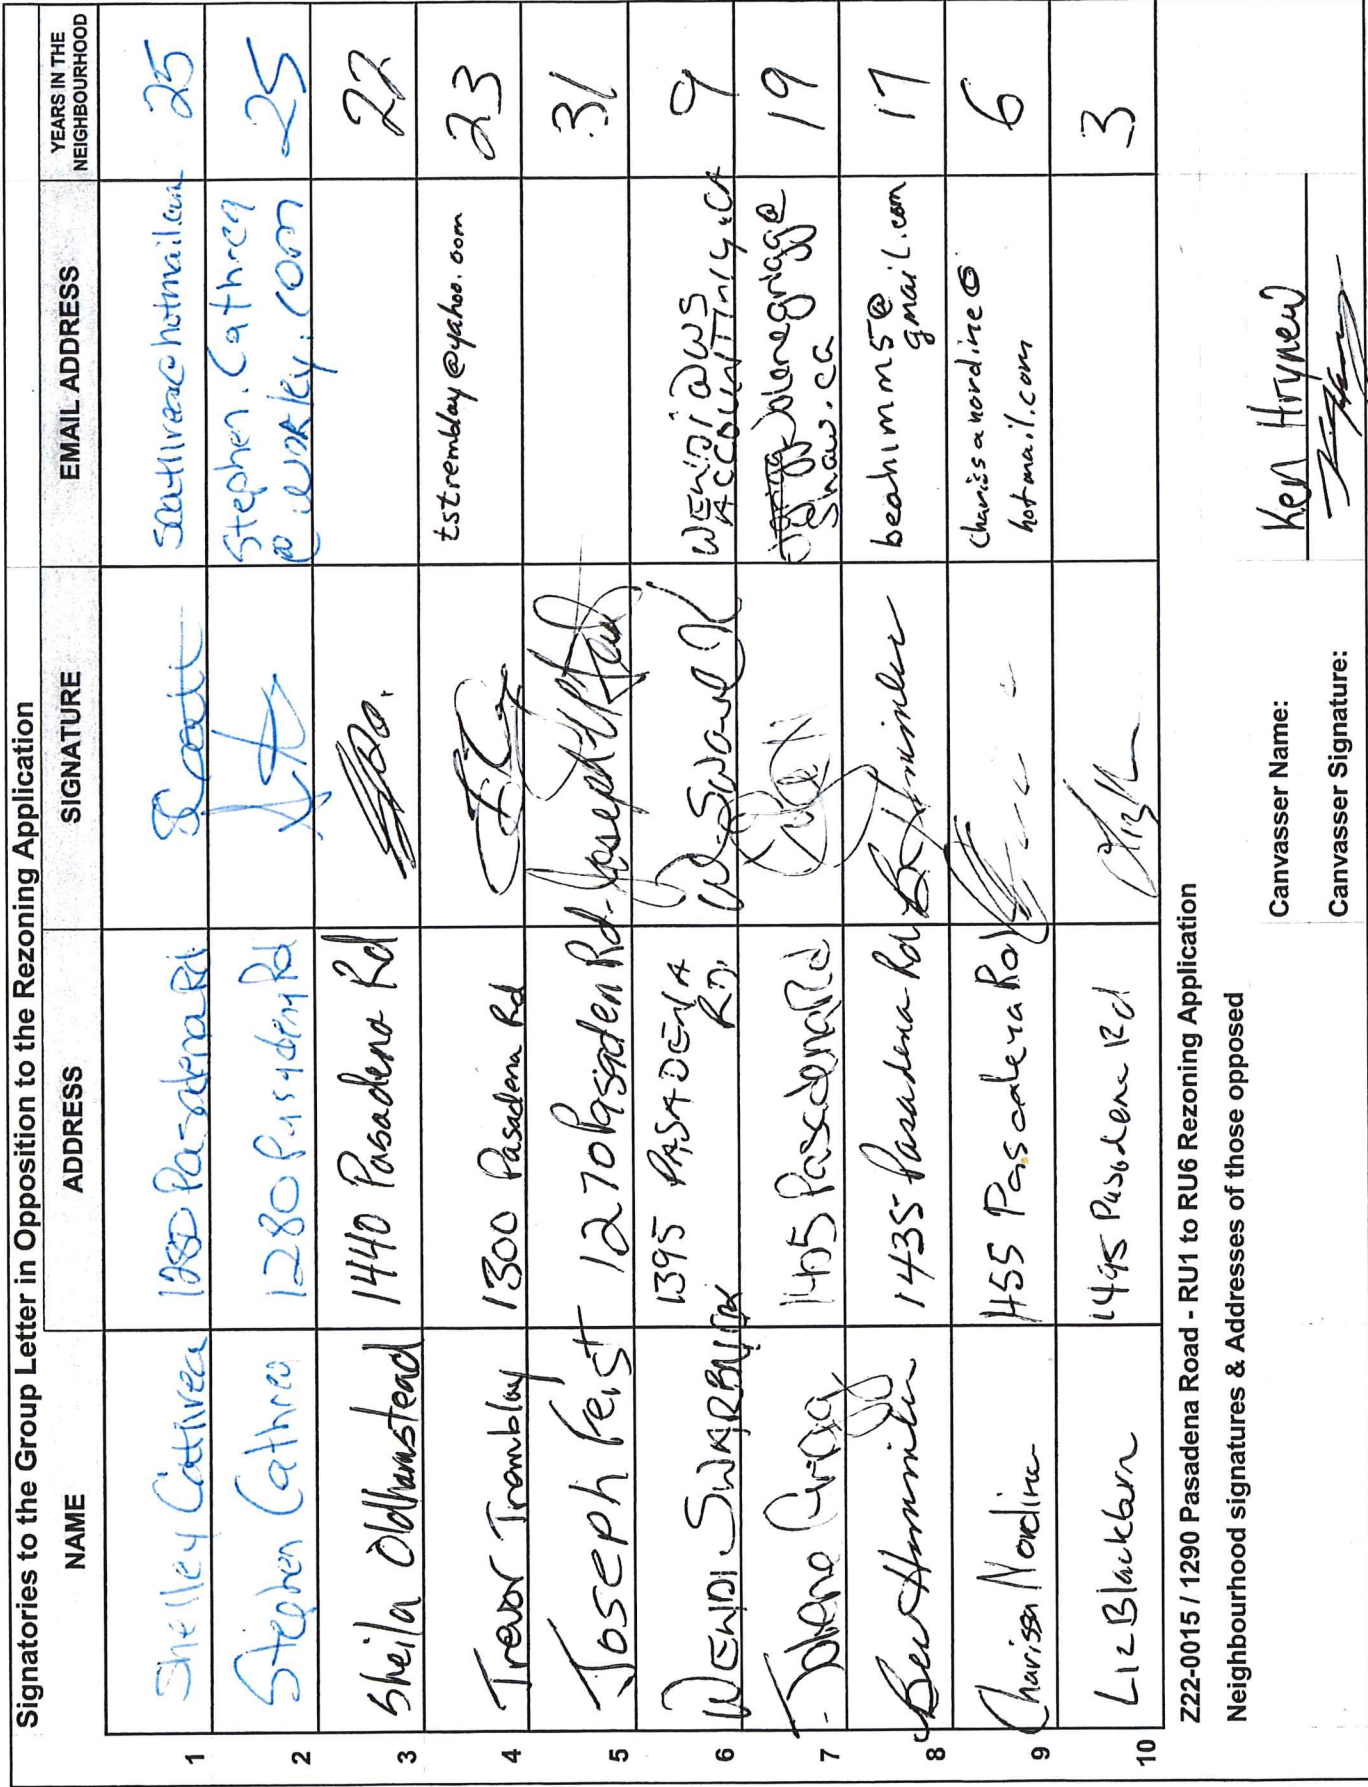 Signatories to the Group Letter in Opposition to the Rezoning Application
NAME ADDRESS SIGNATURE EMAIL ADDRESS YEARS IN THE NEIGHBOURHOOD
1 Shelley Cathrea 1280 Pasadena Rd. scathrea@hotmail.com 25
2 Stephen Cathrea 1280 Pasadena Rd Stephen.Cathrea
@worley.com 25
3 Sheila Oldhamstead 1440 Pasadena Rd 22
4 Trevor Tremblay 1300 Pasadena Rd tstremblay@yahoo.com 23
5 Joseph Feist 1270 Pasaden Rd. 31
6 WENDI SWARBRICK 1395 PASADENA
RD. WENDI@WS
ACCOUNTING.CA 9
7 Jolene Grigg 1465 Pasadena Rd jolenegrigg@
shaw.ca 19
8 Bev Himmler 1435 Pasadena Rd B Himmler beahimm5@
gmail.com 17
9 Charissa Nordine 1455 Pasadena Rd charissanordine@
hotmail.com 6
10 Liz Blackburn 1495 Pasadena Rd 3
Z22-0015 / 1290 Pasadena Road - RU1 to RU6 Rezoning Application
Neighbourhood signatures & Addresses of those opposed
Canvasser Name: Ken Hrynew
Canvasser Signature: